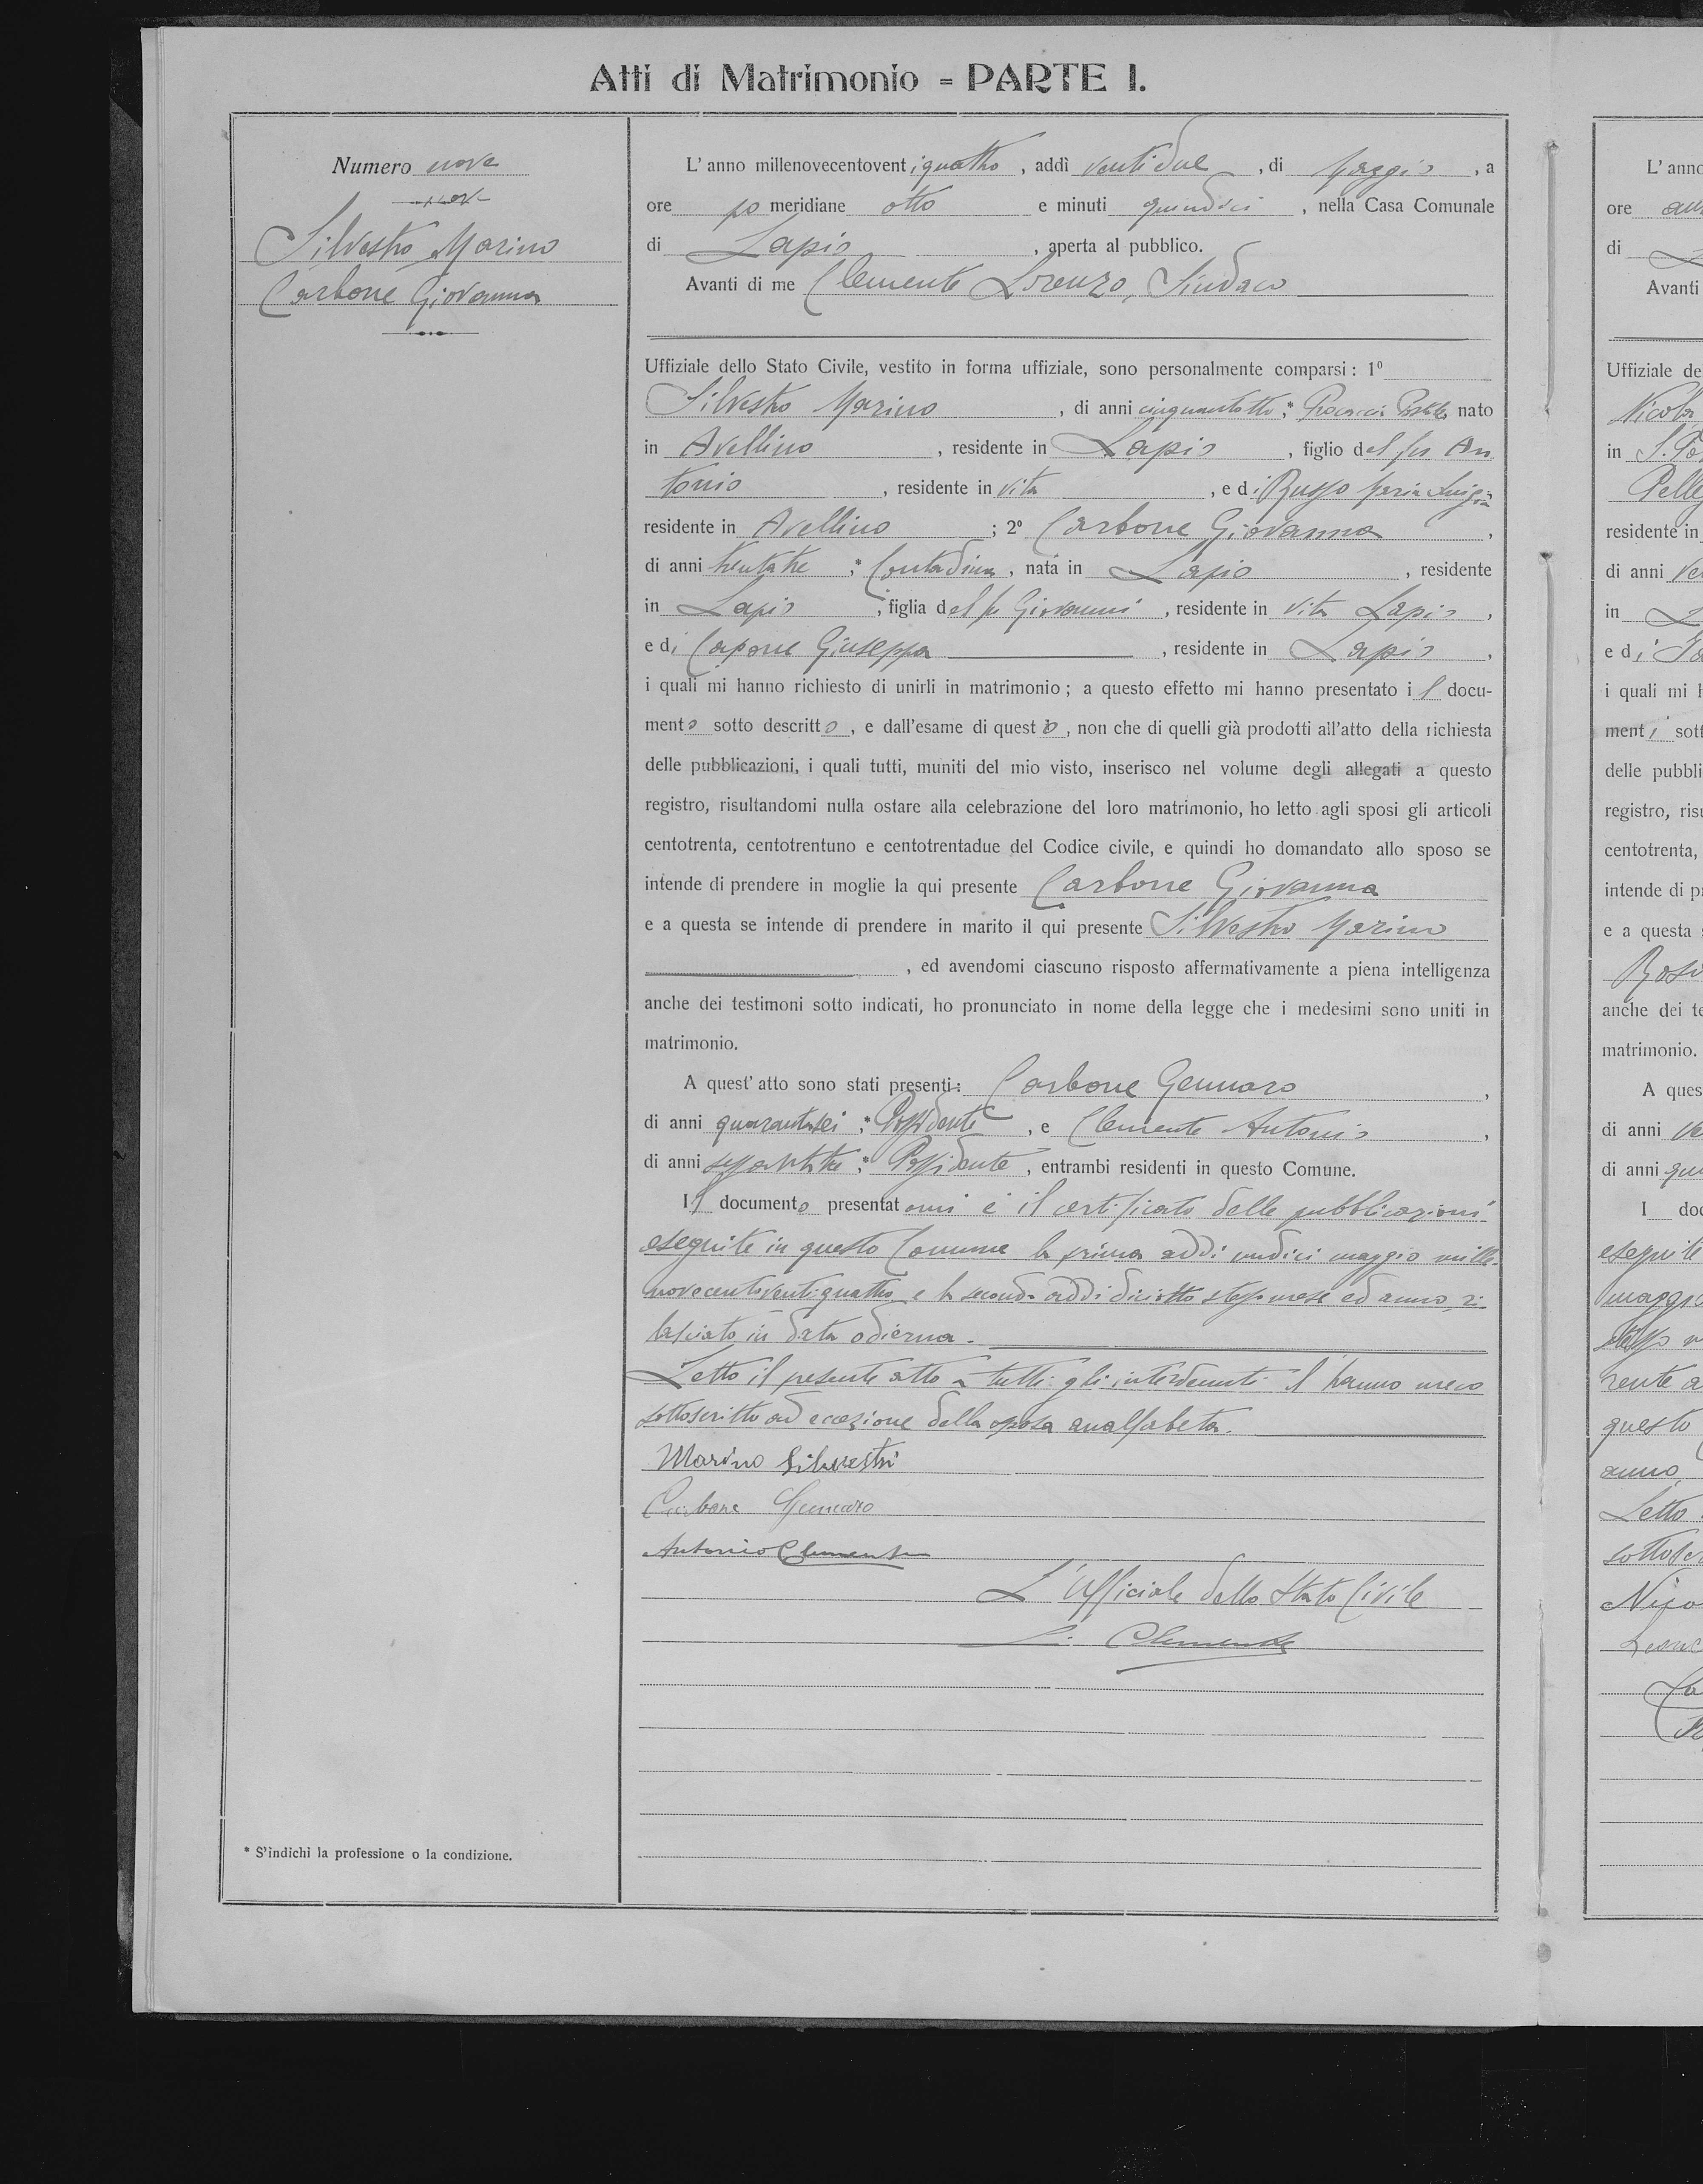 Atti di Matrimonio = PARTE I.
Numero nove
Silvestro Marino
Carbone Giovanna
* S'indichi la professione o la condizione.
L'anno millenovecentoventiquattro, addì ventidue, di Maggio, a
ore pomeridiane otto e minuti quindici, nella Casa Comunale
di Lapio, aperta al pubblico.
Avanti di me Clemente Lorenzo, Sindaco
Uffiziale dello Stato Civile, vestito in forma uffiziale, sono personalmente comparsi: 1º
Silvestro Marino, di anni cinquantotto,* Procaccia Postale nato
in Avellino, residente in Lapio, figlio del fu An
tonio, residente in vita, e di Russo Maria Luigia
residente in Avellino; 2º Carbone Giovanna,
di anni trentatre,* Contadina, nata in Lapio, residente
in Lapio, figlia del fu Giovanni, residente in vita Lapio,
e di Capone Giuseppa, residente in Lapio,
i quali mi hanno richiesto di unirli in matrimonio; a questo effetto mi hanno presentato il docu-
mento sotto descritto, e dall'esame di questo, non che di quelli già prodotti all'atto della richiesta
delle pubblicazioni, i quali tutti, muniti del mio visto, inserisco nel volume degli allegati a questo
registro, risultandomi nulla ostare alla celebrazione del loro matrimonio, ho letto agli sposi gli articoli
centotrenta, centotrentuno e centotrentadue del Codice civile, e quindi ho domandato allo sposo se
intende di prendere in moglie la qui presente Carbone Giovanna
e a questa se intende di prendere in marito il qui presente Silvestro Marino
, ed avendomi ciascuno risposto affermativamente a piena intelligenza
anche dei testimoni sotto indicati, ho pronunciato in nome della legge che i medesimi sono uniti in
matrimonio.
A quest'atto sono stati presenti: Carbone Gennaro,
di anni quarantasei,* Possidente, e Clemente Antonio,
di anni sessantatre,* Possidente, entrambi residenti in questo Comune.
Il documento presentatomi è il certificato delle pubblicazioni
eseguite in questo Comune la prima addì undici maggio mille-
novecentoventiquattro e la seconda addì diciotto stesso mese ed anno, ri-
lasciato in data odierna.
Letto il presente atto a tutti gli intervenuti l'hanno meco
sottoscritto ad eccezione della sposa analfabeta.
Marino Silvestri
Carbone Gennaro
Antonio Clemente
L'Ufficiale dello Stato Civile
L. Clemente
L'anno
ore
di
Avanti
Uffiziale de
Nicola
in
Pelle
residente in
di anni
in
e di
i quali mi
menti sott
delle pubbli
registro, risu
centotrenta,
intende di p
e a questa
anche dei te
matrimonio.
A ques
di anni
di anni
I doc
eseguite
maggio
stesso
questo
anno,
Letto